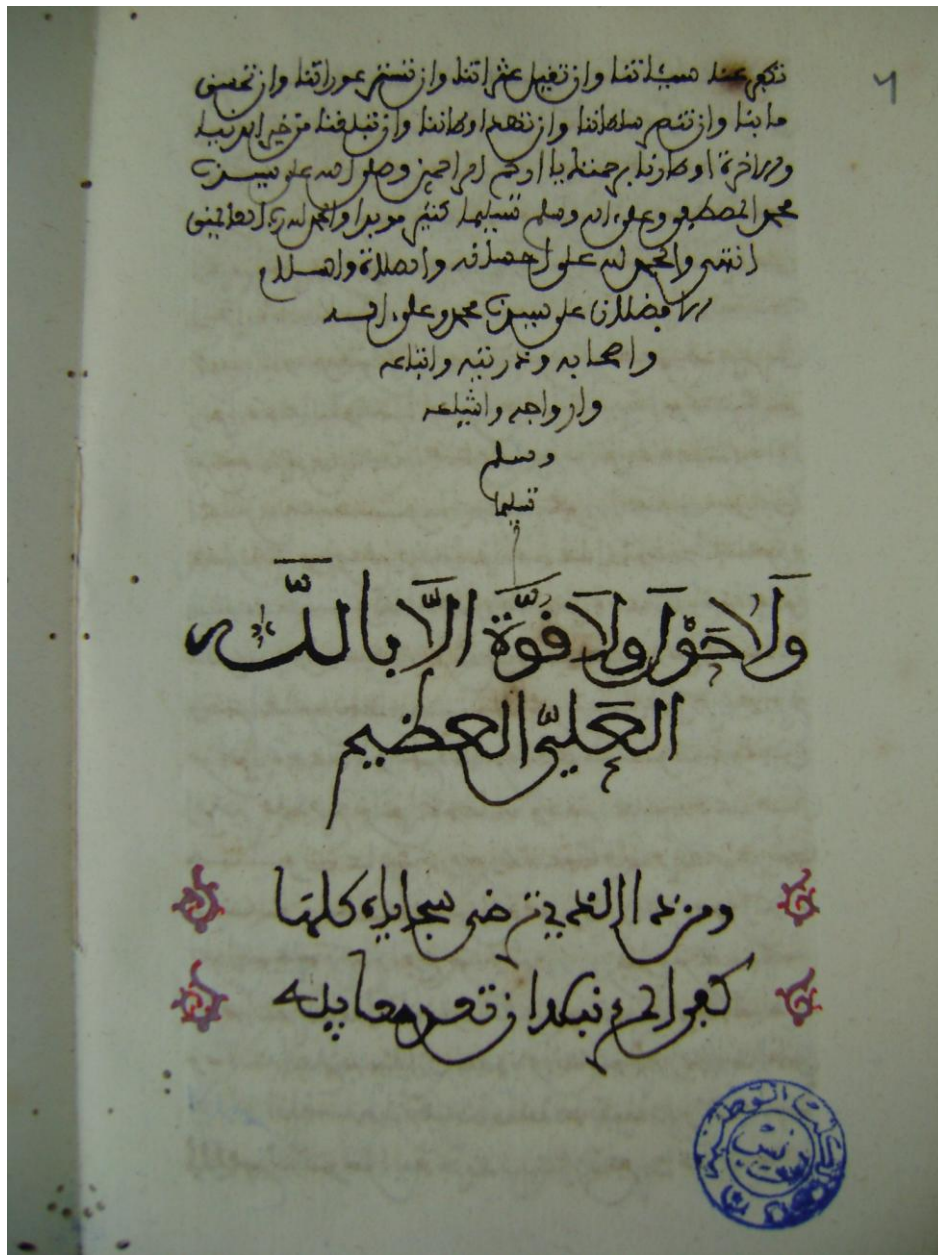 تكفر عنا سيئاتنا وان تقيل عثراتنا وان تستر عوراتنا وان تحسن
مابنا وان تنصر سلطاننا وان تبلغنا من خير
والاخرة اوطارنا برحمتك يا ارحم الراحمين وصلى الله على سيدنا
محمد المصطفى وعلى اله وسلم تسليما كثيرا والحمد لله رب العالمين
انتهى والحمد لله على احسانه والصلاة والسلام
الافضلان على سيدنا محمد وعلى اله
واصحابه وذريته واتباعه
وازواجه واشياعه
وسلم
تسليما
وَلَا حَوْلَ وَلَا قُوَّةَ اِلَّا بِاللَّه
العَلِيِّ العظيم
ومن ذا الذي ترضى سجاياه كلها
كفى المرء نبلا ان تعد معايبه